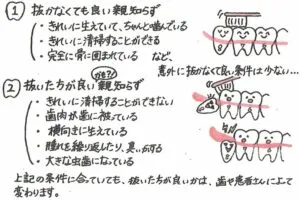 ① 抜かなくても良い親知らず
・きれいに生えていて、ちゃんと噛んでいる
・きれいに清掃することができる
・完全に骨に囲まれている など、
意外に抜かなくて良い条件は少ない…
② 抜いたほうが良い親知らず
かも?
・きれいに清掃することができない
・歯肉が歯に被っている
・横向きに生えている
・腫れを繰り返したり、
・大きな虫歯になっている
上記の条件に合っていても、抜いたほうが良いかは、歯や患者さんによって
変わります。